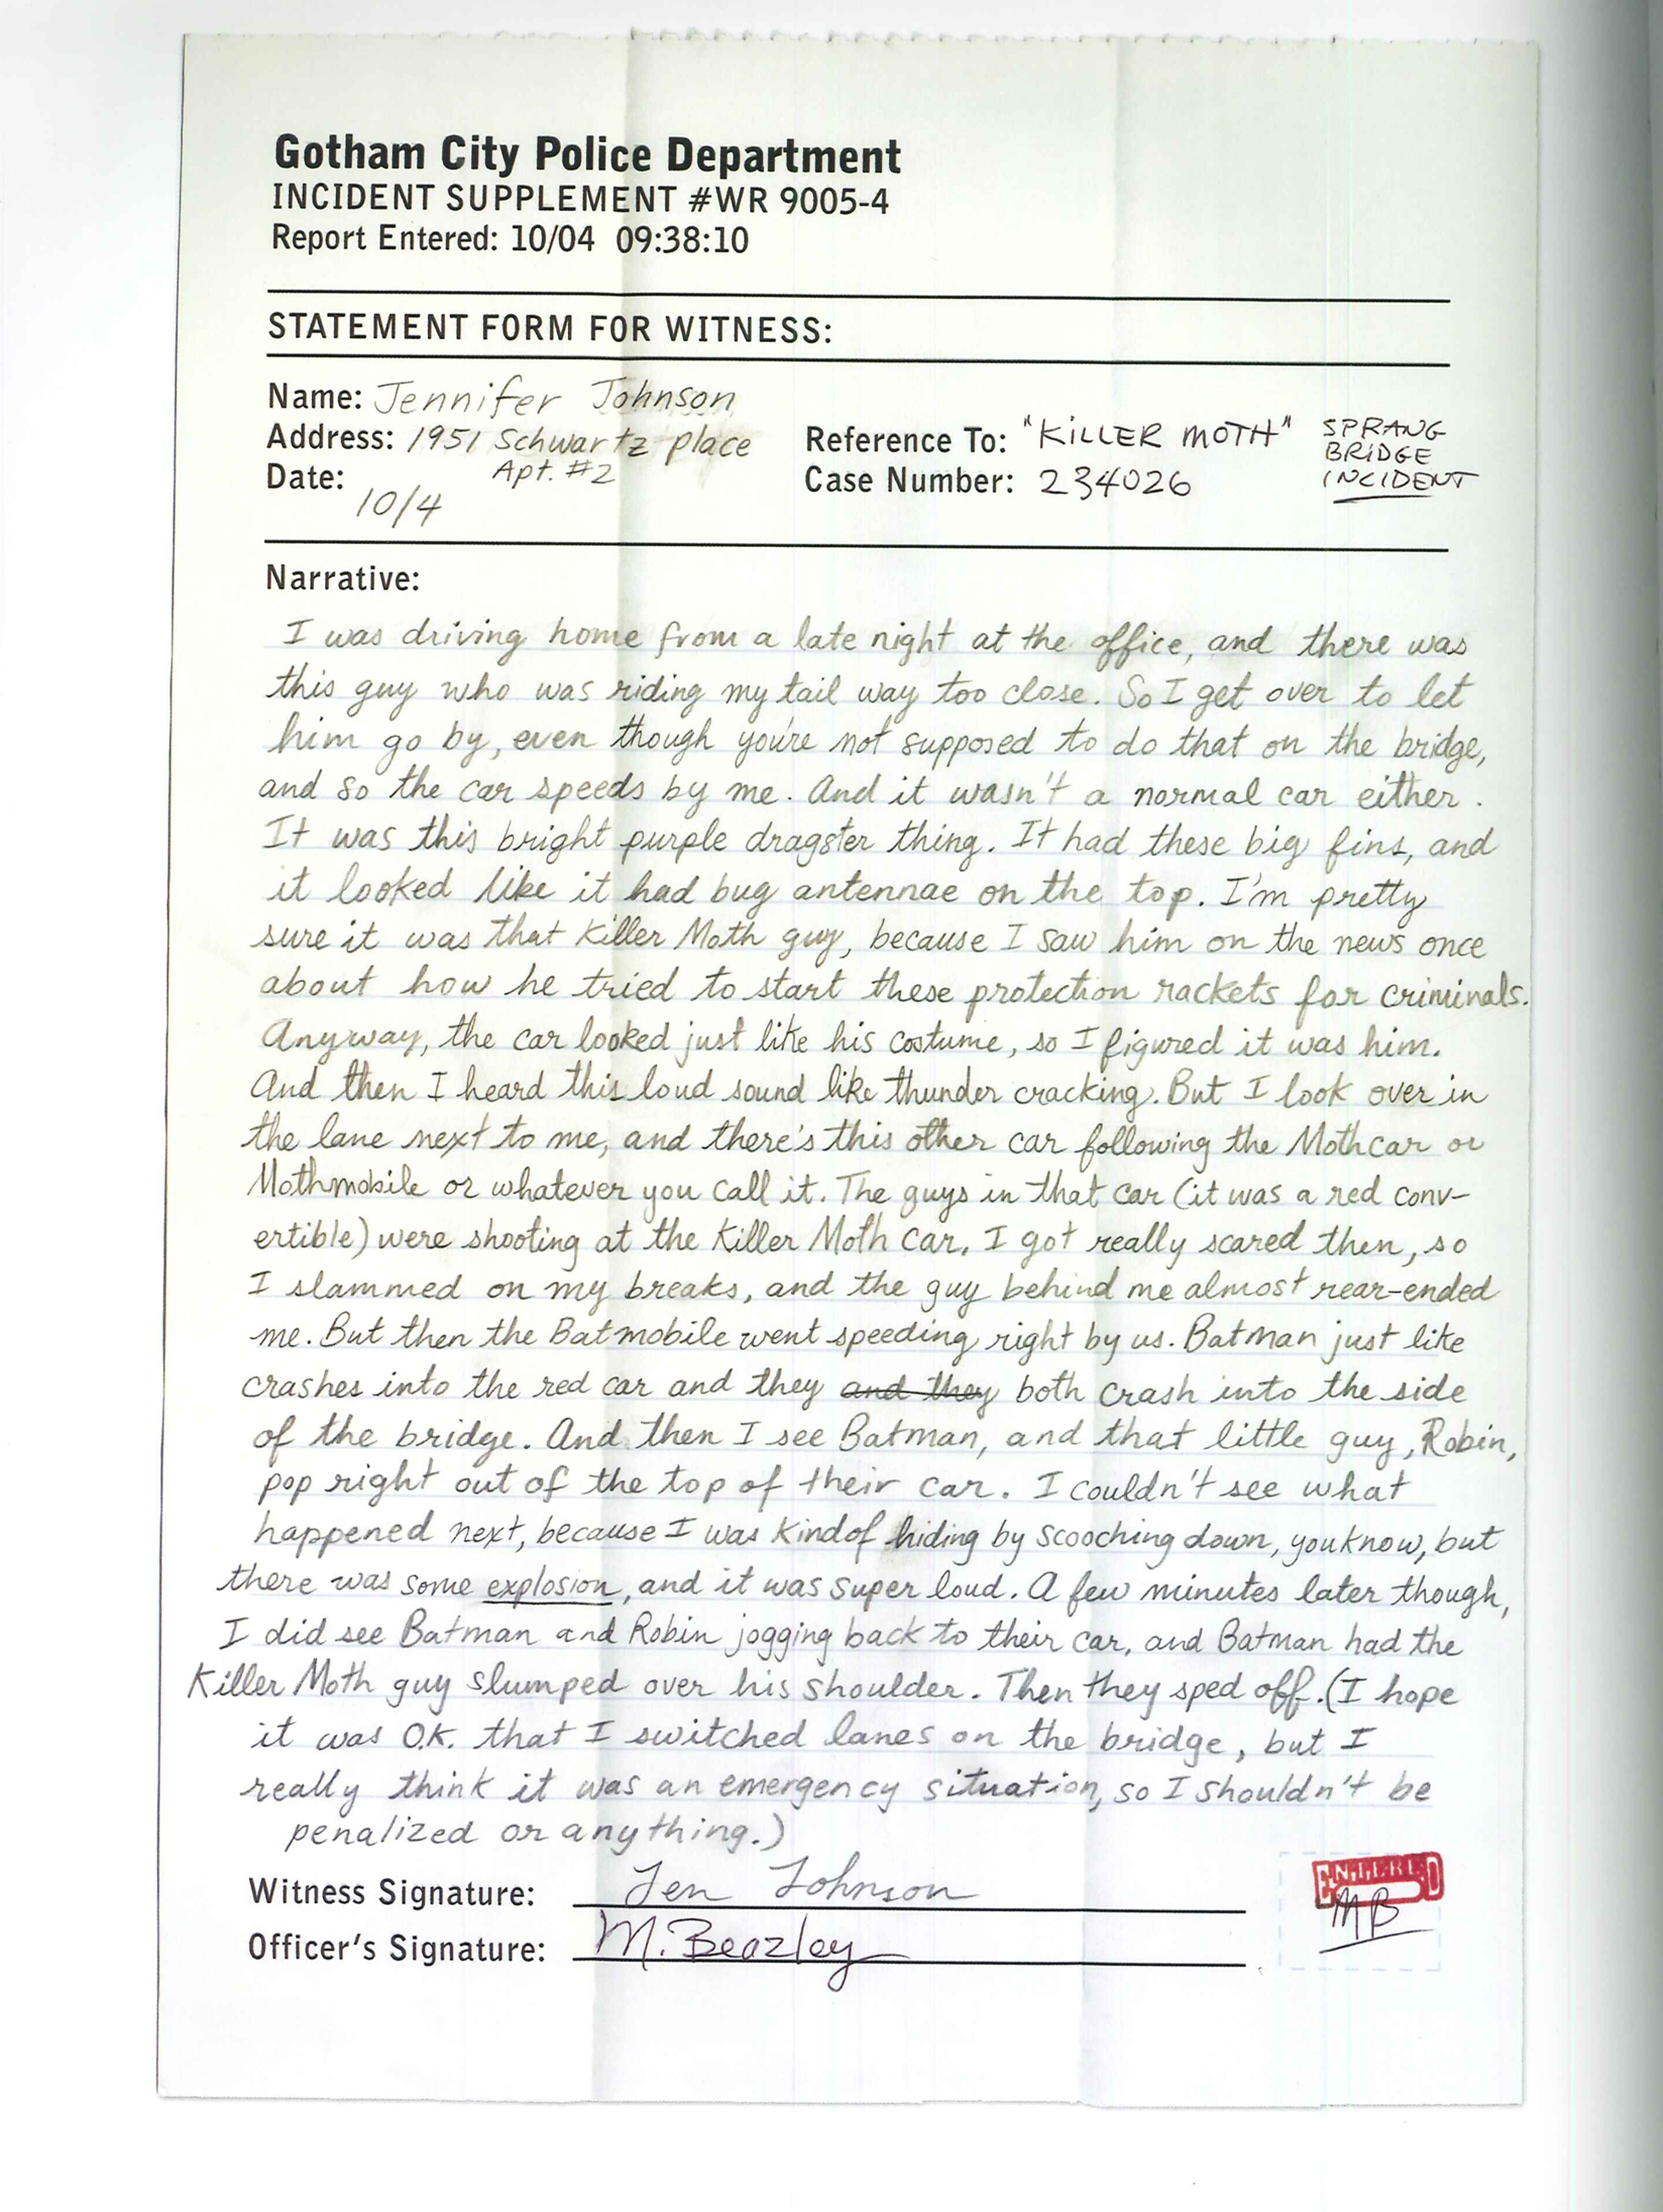 Gotham City Police Department
INCIDENT SUPPLEMENT #WR 9005-4
Report Entered: 10/04 09:38:10
STATEMENT FORM FOR WITNESS:
Name: Jennifer Johnson
Address: 1951 Schwartz place
Apt. #2
Date:
10/4
Reference To: "KiLLER MOTH"
Case Number: 234026
SPRANG
BRiDGE
INCIDENT
Narrative:
I was driving home from a late night at the office, and there was
this guy who was riding my tail way too close. So I get over to let
him go by, even though you're not supposed to do that on the bridge,
and so the car speeds by me. And it wasn't a normal car either.
It was this bright purple dragster thing. It had these big fins, and
it looked like it had bug antennae on the top. I'm pretty
sure it was that Killer Moth guy, because I saw him on the news once
about how he tried to start these protection rackets for criminals.
Anyway, the car looked just like his costume, so I figured it was him.
And then I heard this loud sound like thunder cracking. But I look over in
the lane next to me, and there's this other car following the Mothcar or
Mothmobile or whatever you call it. The guys in that car (it was a red conv-
ertible) were shooting at the Killer Moth car. I got really scared then, so
I slammed on my breaks, and the guy behind me almost rear-ended
me. But then the Batmobile went speeding right by us. Batman just like
crashes into the red car and they and they both crash into the side
of the bridge. And then I see Batman, and that little guy, Robin,
pop right out of the top of their car. I couldn't see what
happened next, because I was kindof hiding by scooching down, youknow, but
there was some explosion, and it was super loud. A few minutes later though,
I did see Batman and Robin jogging back to their car, and Batman had the
Killer Moth guy slumped over his shoulder. Then they sped off. (I hope
it was O.K. that I switched lanes on the bridge, but I
really think it was an emergency situation, so I shouldn't be
penalized or anything.)
Witness Signature: Jen Johnson
Officer's Signature: M. Beazley
ENTERED
MB